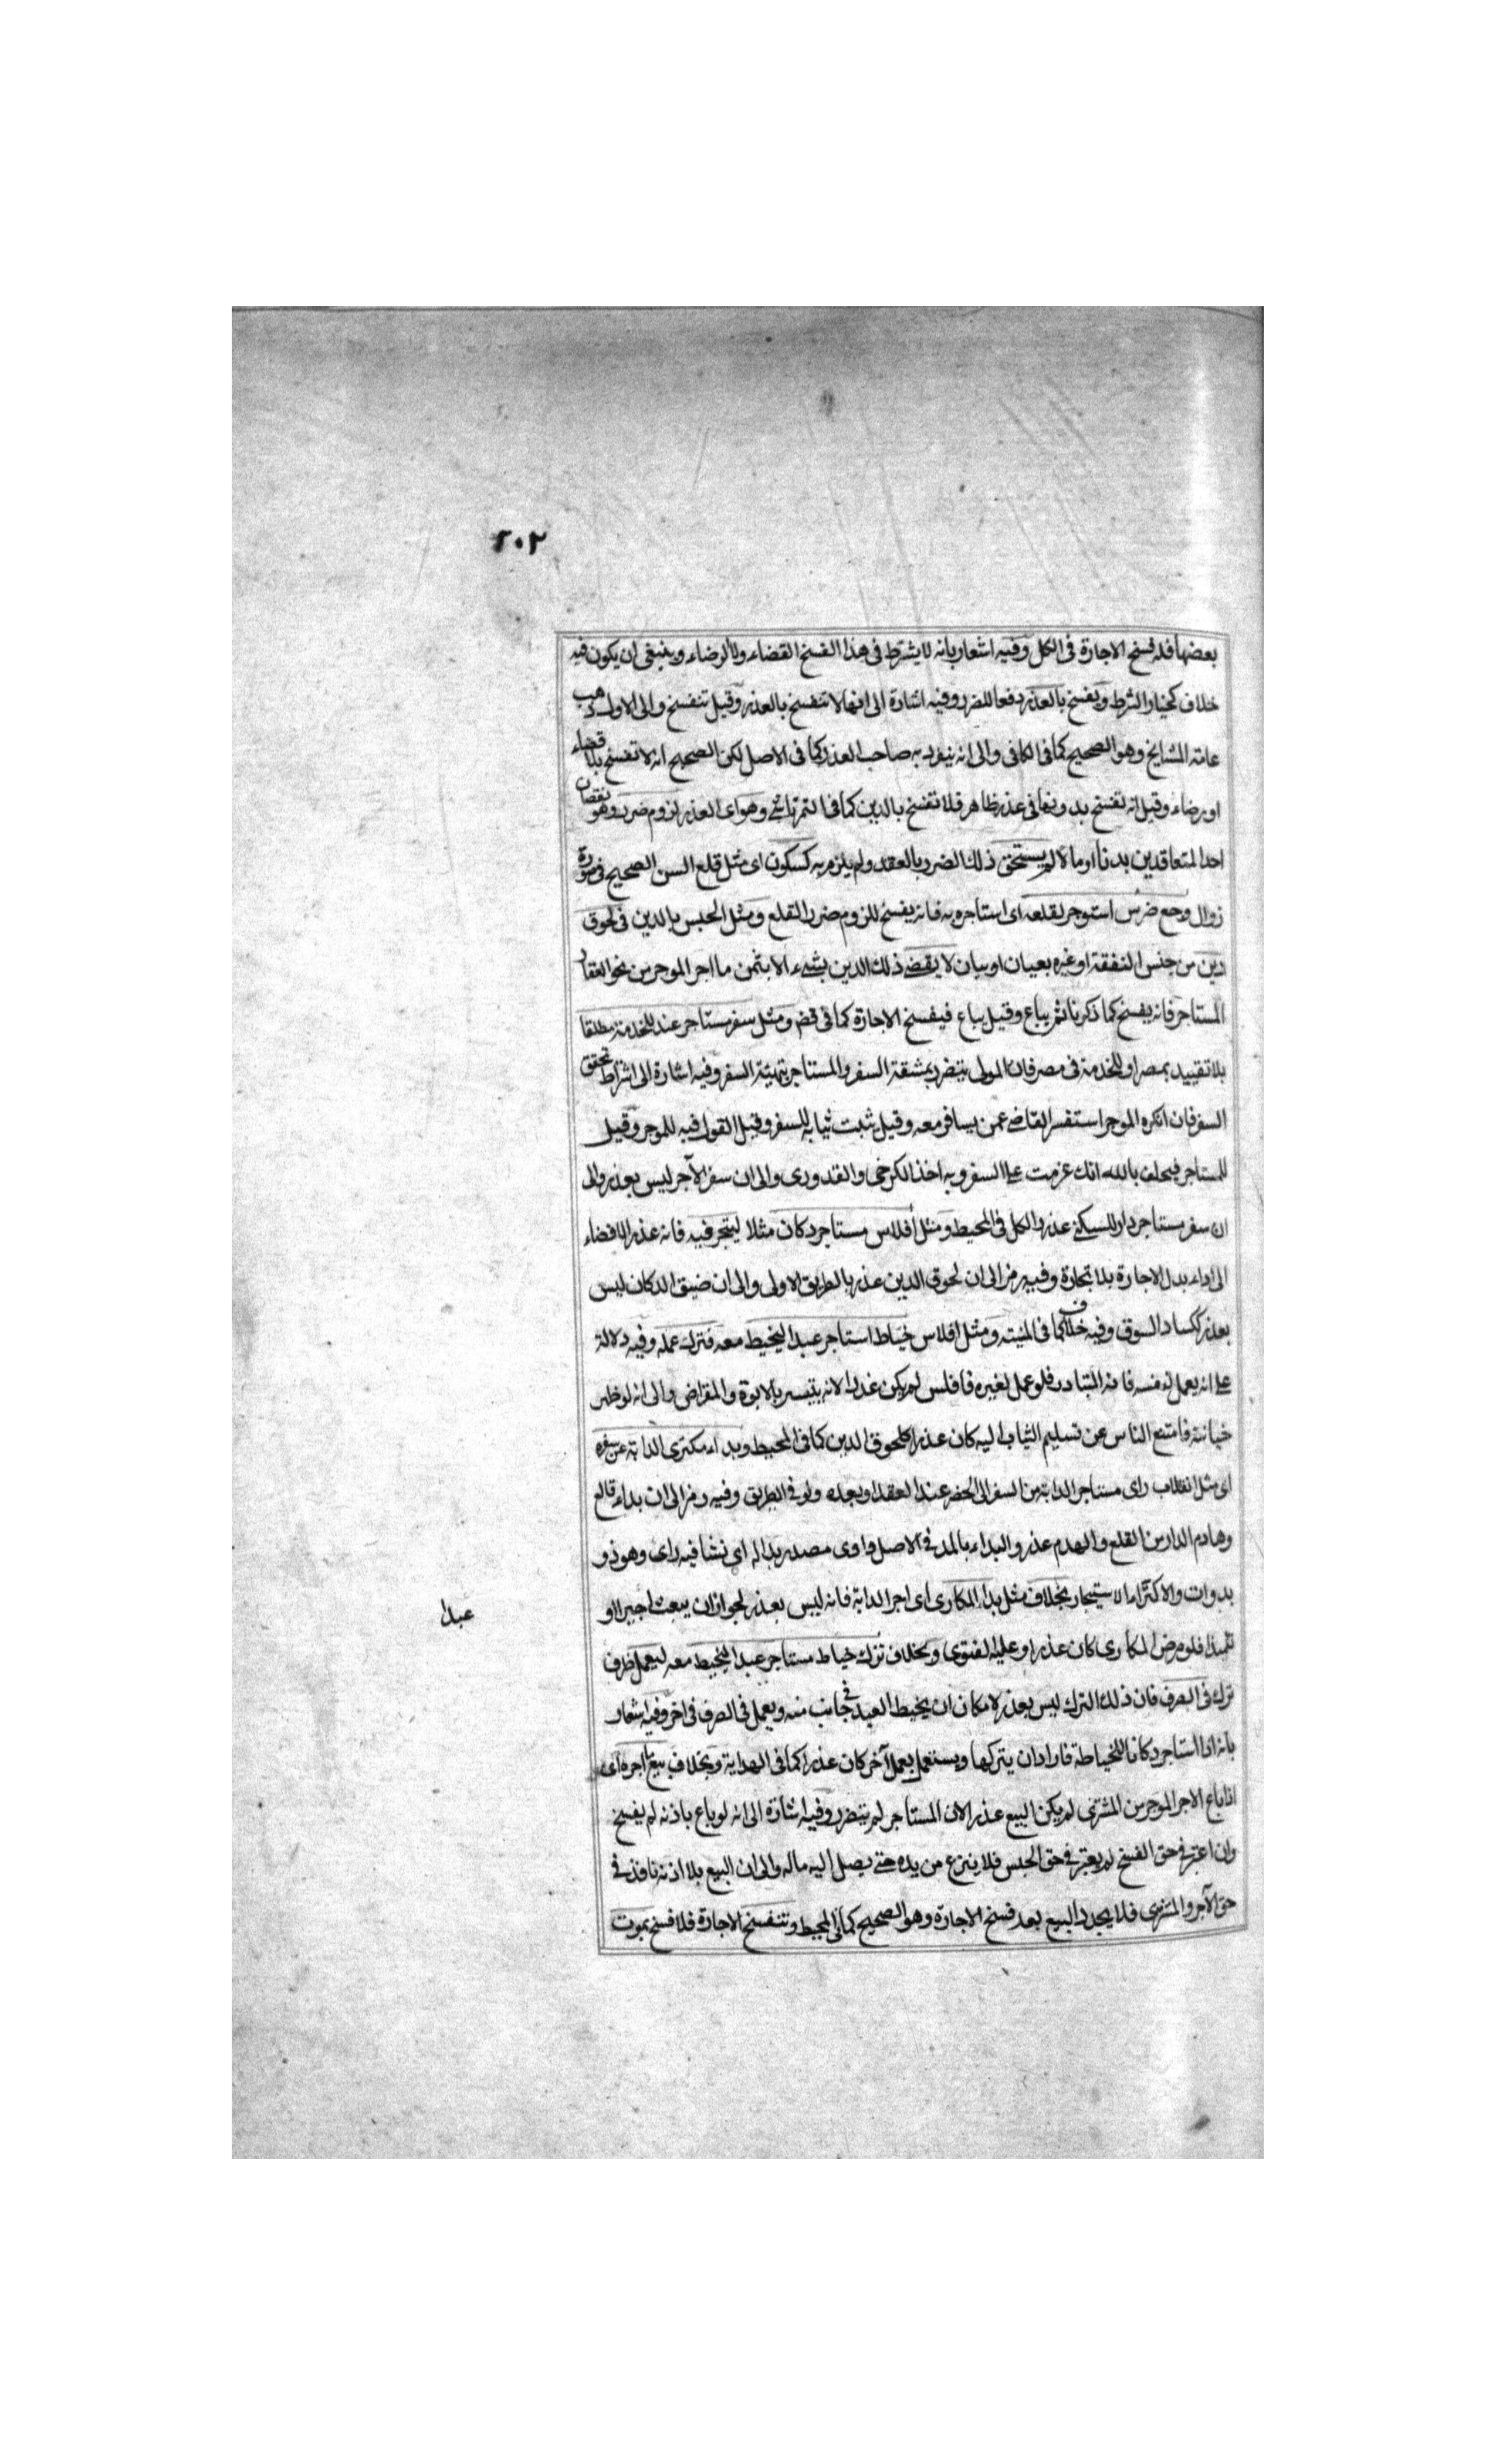 ٢٠٢
بعضها فله فسخ الاجارة فى الكل وفيه اشعار بانه لا يشترط فى هذا الفسخ القضاء ولا الرضاء وينبغى ان يكون فيه
خلاف كخيار الشرط ويفسخ بالعذر دفعا للضرر وفيه اشارة الى انها لا تنفسخ بالعذر وقيل تنفسخ والى الاول ذهب
عامة المشايخ وهو الصحيح كما فى الكافى والى انه ينفرد به صاحب العذر كما فى الاصل لكن الصحيح انه لا تفسخ بلا قضاء
او رضاء وقيل انه تفسخ بدونها فى عذر ظاهر فلا تفسخ بالدين كما فى التمرتاشى وهو اى العذر لزوم ضرر وهو نقصان
احد المتعاقدين بدنا او مالا لم يستحق ذلك الضرر بالعقد ولم يلزم به كسكون اى مثل قلع السن الصحيح فى صورة
زوال وجع ضرس استوجر لقلعه اى استاجره به فانه يفسخ للزوم ضرر القلع ومثل الحبس بالدين فى لحوق
دين من جنس النفقة او غيره بعيان او بيان لا يقضى ذلك الدين بشىء الا بثمن ما اجر الموجر من نحو العقار
المستاجر فانه يفسخ كما ذكرنا ثم يباع وقيل يباع فيفسخ الاجارة كما فى قض ومثل سفر مستاجر عبد للخدمة مطلقا
بلا تقييد بمصر او للخدمة فى مصر فان المولى يتضرر بمشقة السفر والمستاجر بتهيئة السفر وفيه اشارة الى اشتراط تحقق
السفر فان انكره الموجر استفسر القاضى عمن يسافر معه وقيل ثبت ثيابه للسفر وقيل القول فيه للموجر وقيل
للمستاجر فيحلف بالله انك عزمت على السفر وبه اخذ الكرخى والقدورى والى ان سفر الآجر ليس بعذر والى
ان سفر مستاجر دار للسكنى عذر والكل فى المحيط ومثل افلاس مستاجر دكان مثلا ليتجر فيه فانه عذر لافضاء
الى اداء بدل الاجارة بلا تجارة وفيه رمز الى ان لحوق الدين عذر بالطريق الاولى والى ان ضيق الدكان ليس
بعذر ككساد السوق وفيه خلاف كما فى المنية ومثل افلاس خياط استاجر عبدا ليخيط معه فترك عمله وفيه دلالة
على انه يعمل لنفسه فانه المتبادر فلو عمل لغيره فافلس لم يكن عذرا لانه يتيسر بالابرة والمقراض والى انه لو ظهر
خيانته فامتنع الناس عن تسليم الثياب اليه كان عذرا كلحوق الدين كما فى المحيط وبداء مكترى الدابة عن سفره
اى مثل انقلاب راى مستاجر الدابة من السفر الى الحضر عند العقد او بعده ولو فى الطريق وفيه رمز الى ان بداء قالع
وهادم الدار من القلع والهدم عذر والبداء بالمد فى الاصل واوى مصدر بدا له اى نشا فيه راى وهو ذو
بدوات والاكتراء الاستيجار بخلاف مثل بداء المكارى اى اجر الدابة فانه ليس بعذر لجواز ان يبعث اجيرا او
تلميذا فلو مرض المكارى كان عذرا وعليه الفتوى وبخلاف ترك خياط مستاجر عبدا ليخيط معه ليعمل ظرف
ترك فى الصرف فان ذلك الترك ليس بعذر لامكان ان يخيط العبد فى جانب منه ويعمل فى الصرف فى اخر وفيه اشعار
بانه اذا استاجر دكانا للخياطة فاراد ان يتركها ويستعمل بعمل آخر كان عذرا كما فى الهداية وبخلاف بيع ما اجره اى
اذا باع الاجر الموجر من المشترى لم يكن البيع عذرا لان المستاجر لم يتضرر وفيه اشارة الى انه لو باع باذنه لم يفسخ
وان اعتبر فى حق الفسخ لم يعتبر فى حق الحبس فلا ينزع من يده حتى يصل اليه ماله والى ان البيع بلا اذنه نافذ فى
حق الآجر والمشترى فلا يجدد البيع بعد فسخ الاجارة وهو الصحيح كما فى المحيط وتنفسخ الاجارة فلا فسخ بموت
عبدا